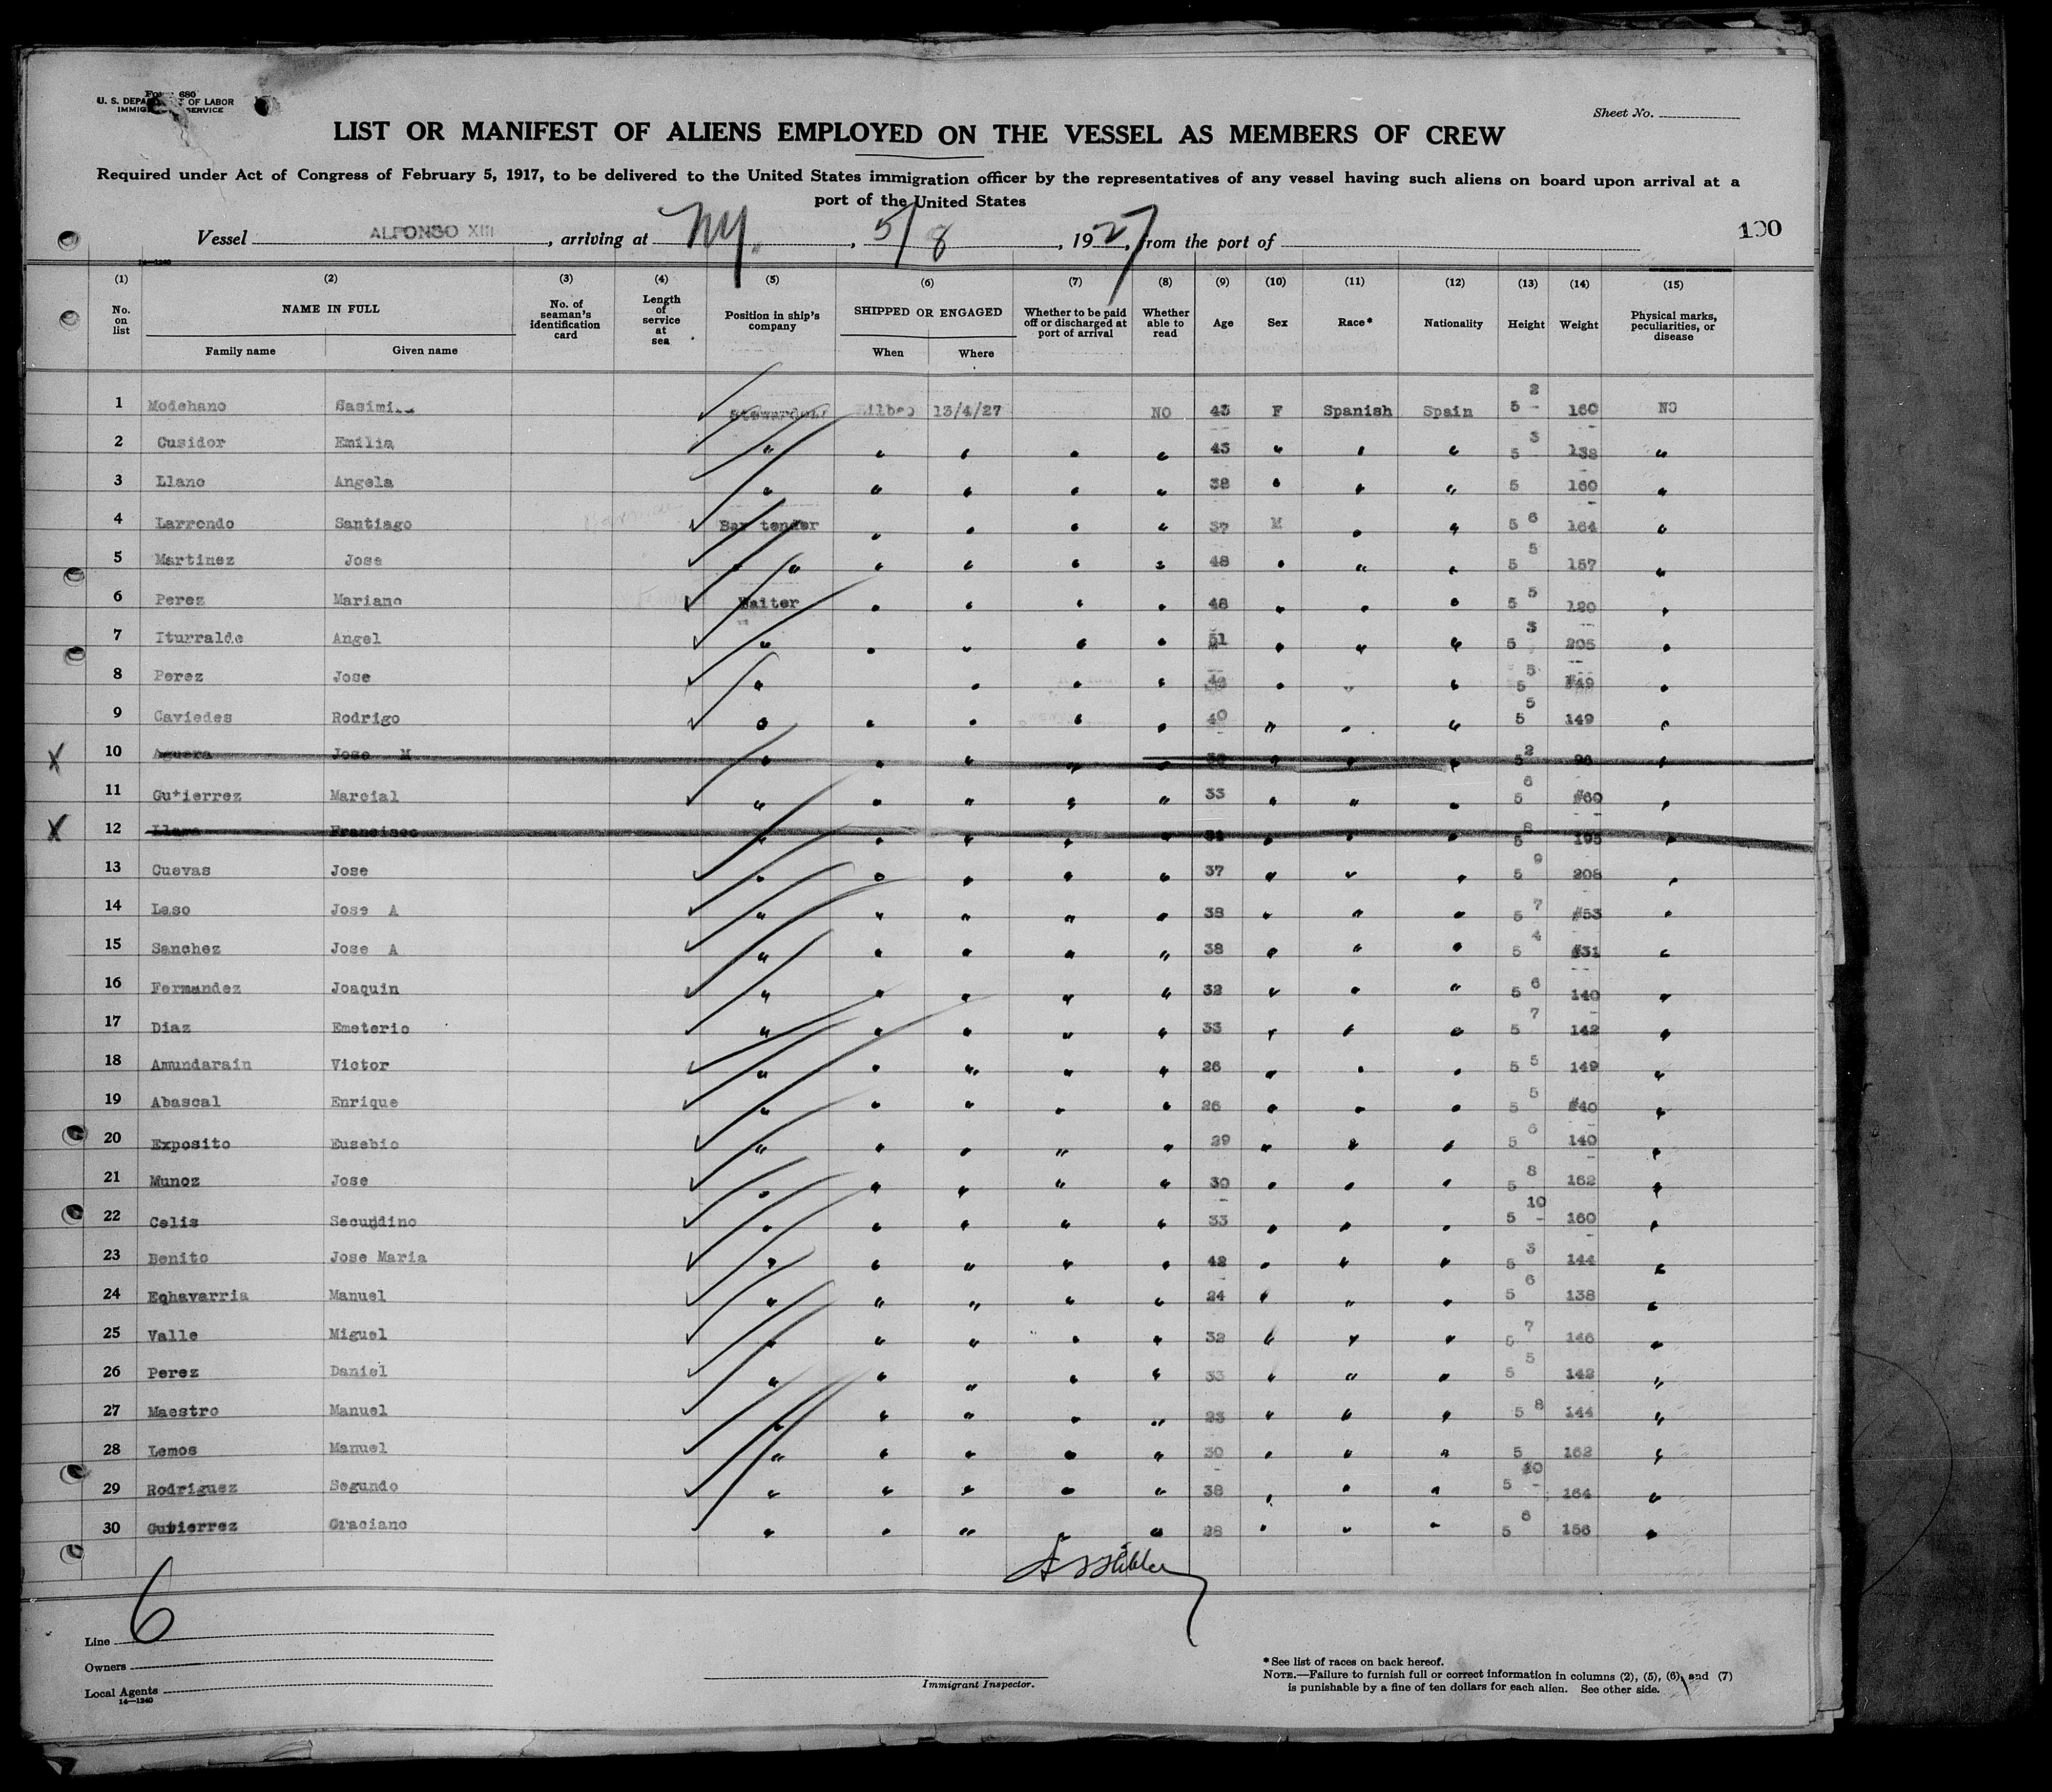 Form 680
U. S. DEPARTMENT OF LABOR
IMMIGRATION SERVICE
Sheet No.
LIST OR MANIFEST OF ALIENS EMPLOYED ON THE VESSEL AS MEMBERS OF CREW
Required under Act of Congress of February 5, 1917, to be delivered to the United States immigration officer by the representatives of any vessel having such aliens on board upon arrival at a
port of the United States
Vessel ALFONSO XIII, arriving at NY., 5/8, 1927, from the port of
100
14—1240
(1) (2) (3) (4) (5) (6) (7) (8) (9) (10) (11) (12) (13) (14) (15)
No. on list NAME IN FULL No. of seaman's identification card Length of service at sea Position in ship's company SHIPPED OR ENGAGED Whether to be paid off or discharged at port of arrival Whether able to read Age Sex Race* Nationality Height Weight Physical marks, peculiarities, or disease
Family name Given name When Where
1 Modehano Stewardess Bilbao 13/4/27 NO 43 F Spanish Spain 5 2 160 NO
2 Cusidor Emilia " " " " " 43 " " " 5 3 138 "
3 Llano Angela " " " " " 38 " " " 5 160 "
4 Larrondo Santiago Bar tender " " " " 37 M " " 5 6 164 "
5 Martinez Jose " " " " " " 48 " " " 5 5 157 "
6 Perez Mariano Waiter " " " " 48 " " " 5 5 120 "
7 Iturralde Angel " " " " " 51 " " " 5 3 205 "
8 Perez Jose " " " " " " " 5 5 149 "
9 Caviedes Rodrigo " " " " " 40 " " " 5 5 149 "
10 Aguera Jose M " " " " " " " " 5 2 "
11 Gutierrez Marcial " " " " " 33 " " " 5 6 160 "
12 Francisco " " " " " " " " 5 8 195 "
13 Cuevas Jose " " " " " 37 " " " 5 9 208 "
14 Laso Jose A " " " " " 38 " " " 5 7 153 "
15 Sanchez Jose A " " " " " 38 " " " 5 4 131 "
16 Fermandez Joaquin " " " " " 32 " " " 5 6 140 "
17 Diaz Emeterio " " " " " 33 " " " 5 7 142 "
18 Amundarain Victor " " " " " 26 " " " 5 5 149 "
19 Abascal Enrique " " " " " 26 " " " 5 5 140 "
20 Exposito Eusebio " " " " " 29 " " " 5 6 140 "
21 Munoz Jose " " " " " 30 " " " 5 8 162 "
22 Celis Secundino " " " " " 33 " " " 5 10 160 "
23 Benito Jose Maria " " " " " 42 " " " 5 3 144 "
24 Eqhavarria Manuel " " " " " 24 " " " 5 6 138 "
25 Valle Miguel " " " " " 32 " " " 5 7 146 "
26 Perez Daniel " " " " " 33 " " " 5 5 142 "
27 Maestro Manuel " " " " " 23 " " " 5 8 144 "
28 Lemos Manuel " " " " " 30 " " " 5 162 "
29 Rodriguez Segundo " " " " " 38 " " " 5 10 164 "
30 Gutierrez Graciano " " " " " 28 " " " 5 6 156 "
6
Line
Owners
Local Agents
14—1240
Immigrant Inspector.
*See list of races on back hereof.
NOTE.—Failure to furnish full or correct information in columns (2), (5), (6), and (7)
is punishable by a fine of ten dollars for each alien. See other side.